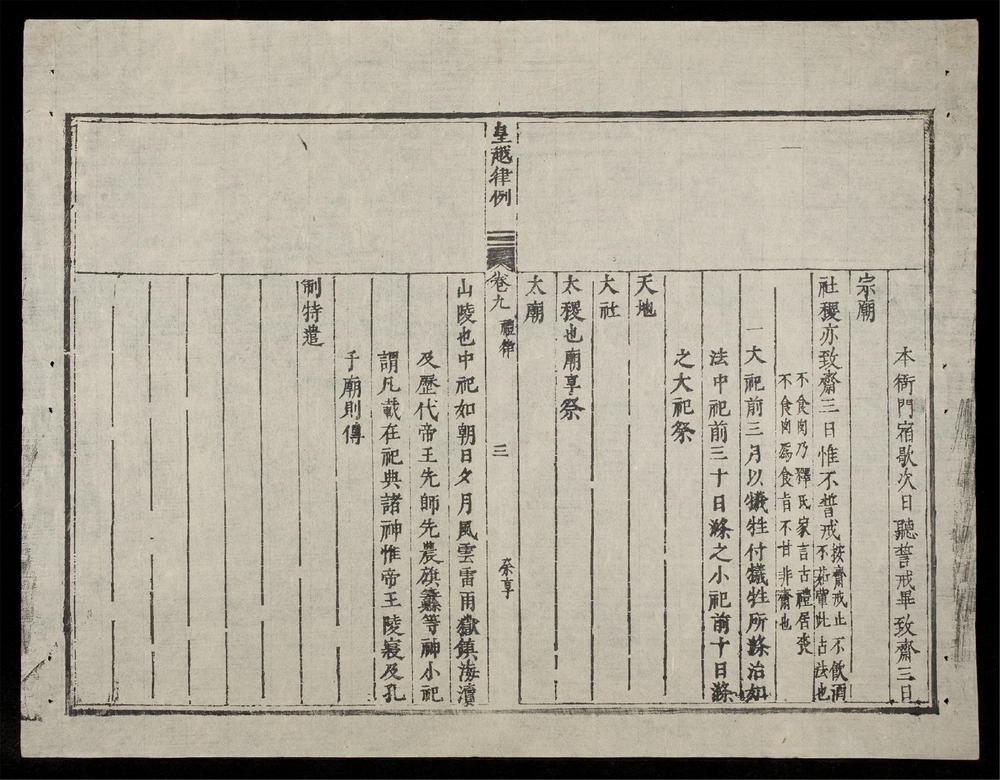 本衙門宿歇次日聽誓戒畢致齋三日
宗廟
社稷亦致齋三日惟不誓戒按齋戒止不飲酒
不茹葷此古法也
不食肉乃釋氏家言古禮居喪
不食肉爲食旨不甘非齋也
一大祀前三月以犧牲付犧牲所滌治如
法中祀前三十日滌之小祀前十日滌
之大祀祭
天地
大社
太稷也廟享祭
太廟
皇越律例
卷九
禮律
三
祭享
山陵也中祀如朝日夕月風雲雷雨嶽鎮海瀆
及歷代帝王先師先農旗纛等神小祀
謂凡載在祀典諸神惟帝王陵寢及孔
子廟則傳
制特遣